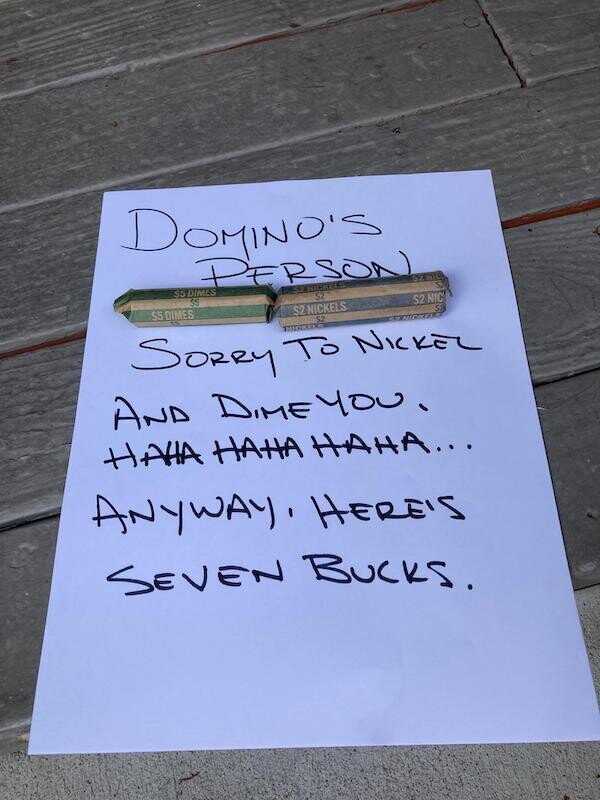 DOMINO'S
PERSON
$5 DIMES
$5
$5 DIMES
$5
$2 NICKELS
$2 NIC
$2
$2 NICKELS
$2 NIC
$2
NICKELS
$2 NICKELS
SORRY TO NICKEL
AND DIME YOU.
HAHA HAHA HAHA...
ANYWAY. HERE'S
SEVEN BUCKS.